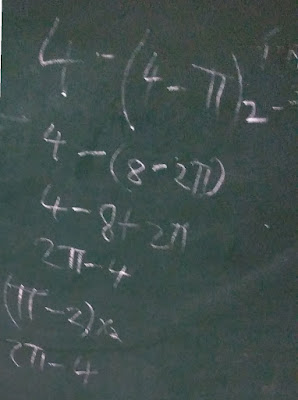 4 - (4 - π)2
4 - (8 - 2π)
4 - 8 + 2π
2π - 4
(π - 2)x2
2π - 4